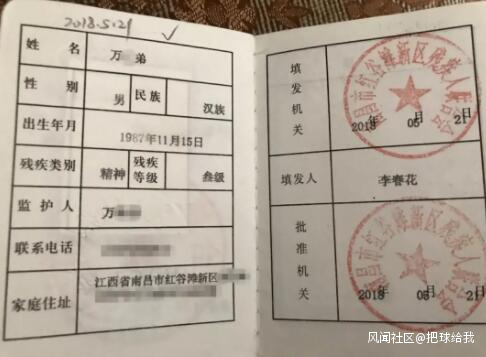 2018.5.21
姓 名 万 弟
性 别 男 民族 汉族
出生年月 1987年11月15日
残疾类别 精神 残疾等级 叁级
监 护 人 万
联系电话
家庭住址 江西省南昌市红谷滩新区
填发机关
南昌市红谷滩新区残疾人联合会
2018 年 05 月 2 日
填发人 李春花
批准机关
南昌市红谷滩新区残疾人联合会
2018 05 月 2 日
风闻社区@把球给我